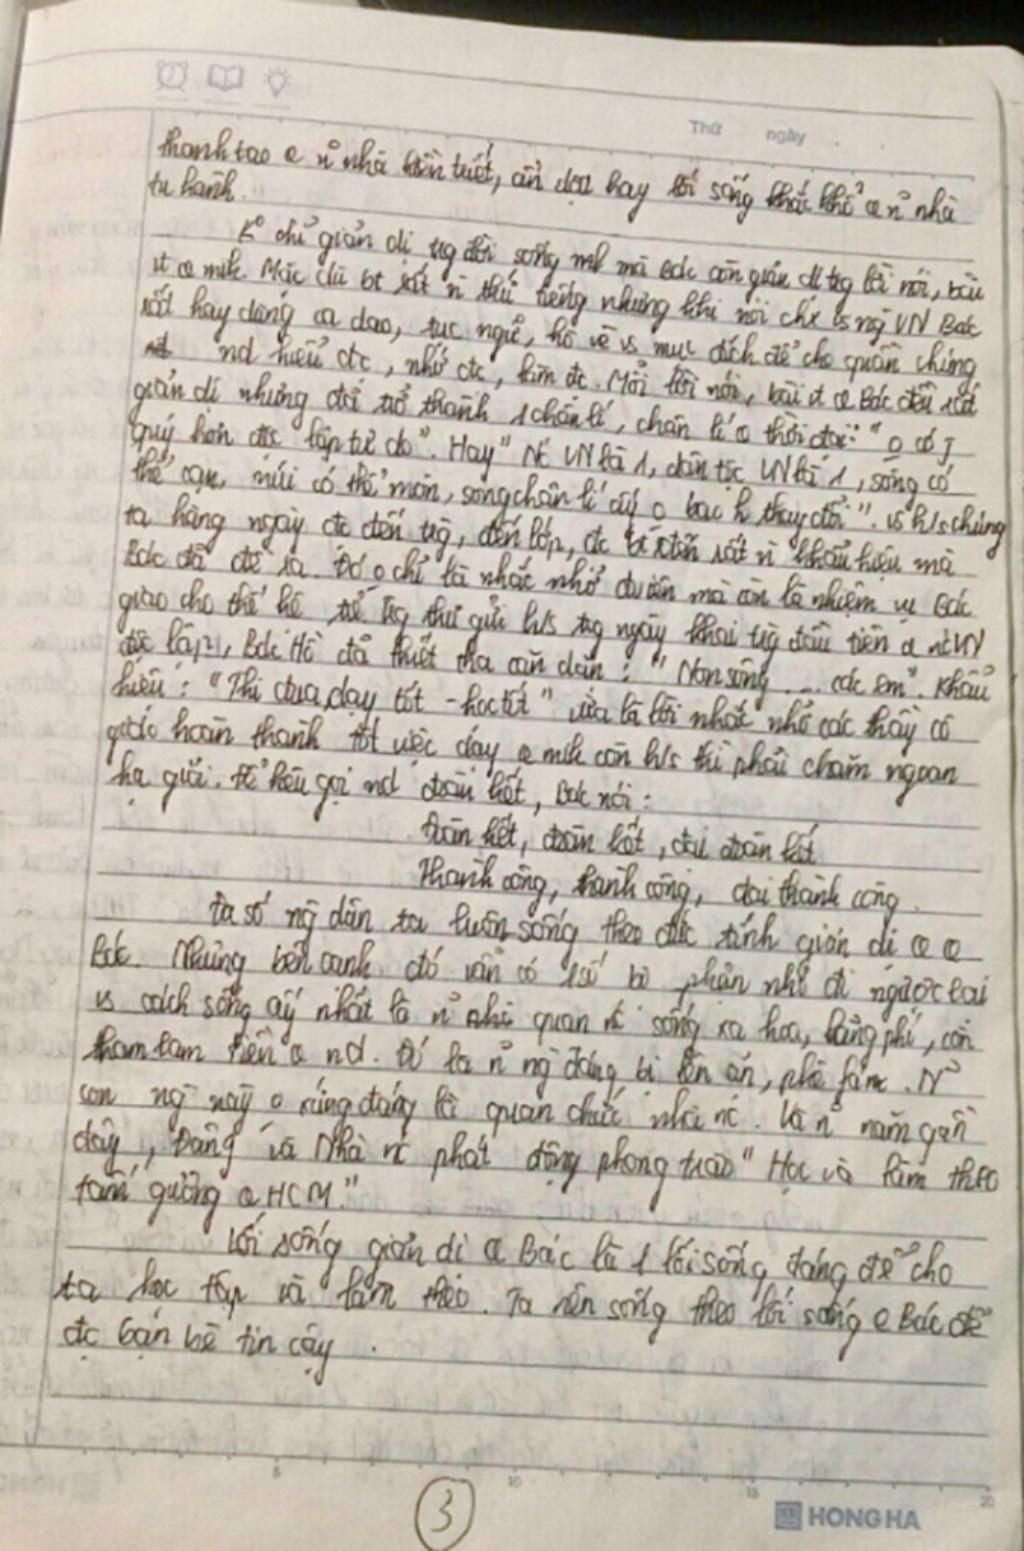 Thứ ngày
thanh tao @ n~ nhà hiền triết, ẩn dật hay lối sống khắc khổ @ n~ nhà
tu hành."
K° chỉ giản dị trg đời sống mk mà Bác còn giản dị trg lời nói, bài
vt @ mik. Mặc dù bt rất n` thứ tiếng nhưng khi nói chx vs ng` VN Bác
rất hay dùng ca dao, tục ngữ, hò vè vs mục đích để cho quần chúng
nd hiểu đc, nhớ đc, làm đc. Mỗi lời nói, bài vt @ Bác đều rất
giản dị nhưng đã trở thành 1 chân lí, chân lí @ thời đại: " o có j
quý hơn độc lập tự do". Hay " Nc VN là 1, dân tộc VN là 1, sông có
thể cạn, núi có thể mòn, song chân lí ấy o bao h thay đổi". vs h/s chúng
ta hàng ngày đc đến trg, đến lớp, đc rất n` khẩu hiệu mà
Bác đã đề ra. Đó o chỉ là nhắc nhở mà còn là nhiệm vụ Bác
giao cho thế hệ trẻ. Trg thư gửi h/s trg ngày khai trg đầu tiên @ nc VN
độc lập, Bác Hồ đã thiết tha căn dặn : " Non sông .... các em". Khẩu
hiệu : "Thi đua dạy tốt - học tốt " vừa là lời nhắc nhở các thầy cô
giáo hoàn thành tốt việc dạy @ mik còn h/s thì phải chăm ngoan
họ giỏi. Để kêu gọi nd đoàn kết, Bác nói :
Đoàn kết, đoàn kết, đại đoàn kết
Thành công, thành công, đại thành công.
Đa số ng` dân ta luôn sống theo đức tính giản dị @
Bác. Nhưng bên cạnh đó vẫn có 1 số bộ phận nhỏ đi ngược lại
vs cách sống ấy nhất là n~ quan sống xa hoa, lãng phí, còn
tham lam tiền @ nd. Đó là n~ ng` đáng bị lên án, phê fán. N~
con ng` này o xứng đáng là quan chức nhà nc. Và n~ năm gần
đây, Đảng và Nhà nc phát động phong trào " Học và làm theo
tấm gương @ HCM."
Lối sống giản dị @ Bác là 1 lối sống đáng để cho
ta học tập và làm theo. Ta nên sống theo lối sống @ Bác để
đc bạn bè tin cậy.
5 10 15 20
3
HONG HA